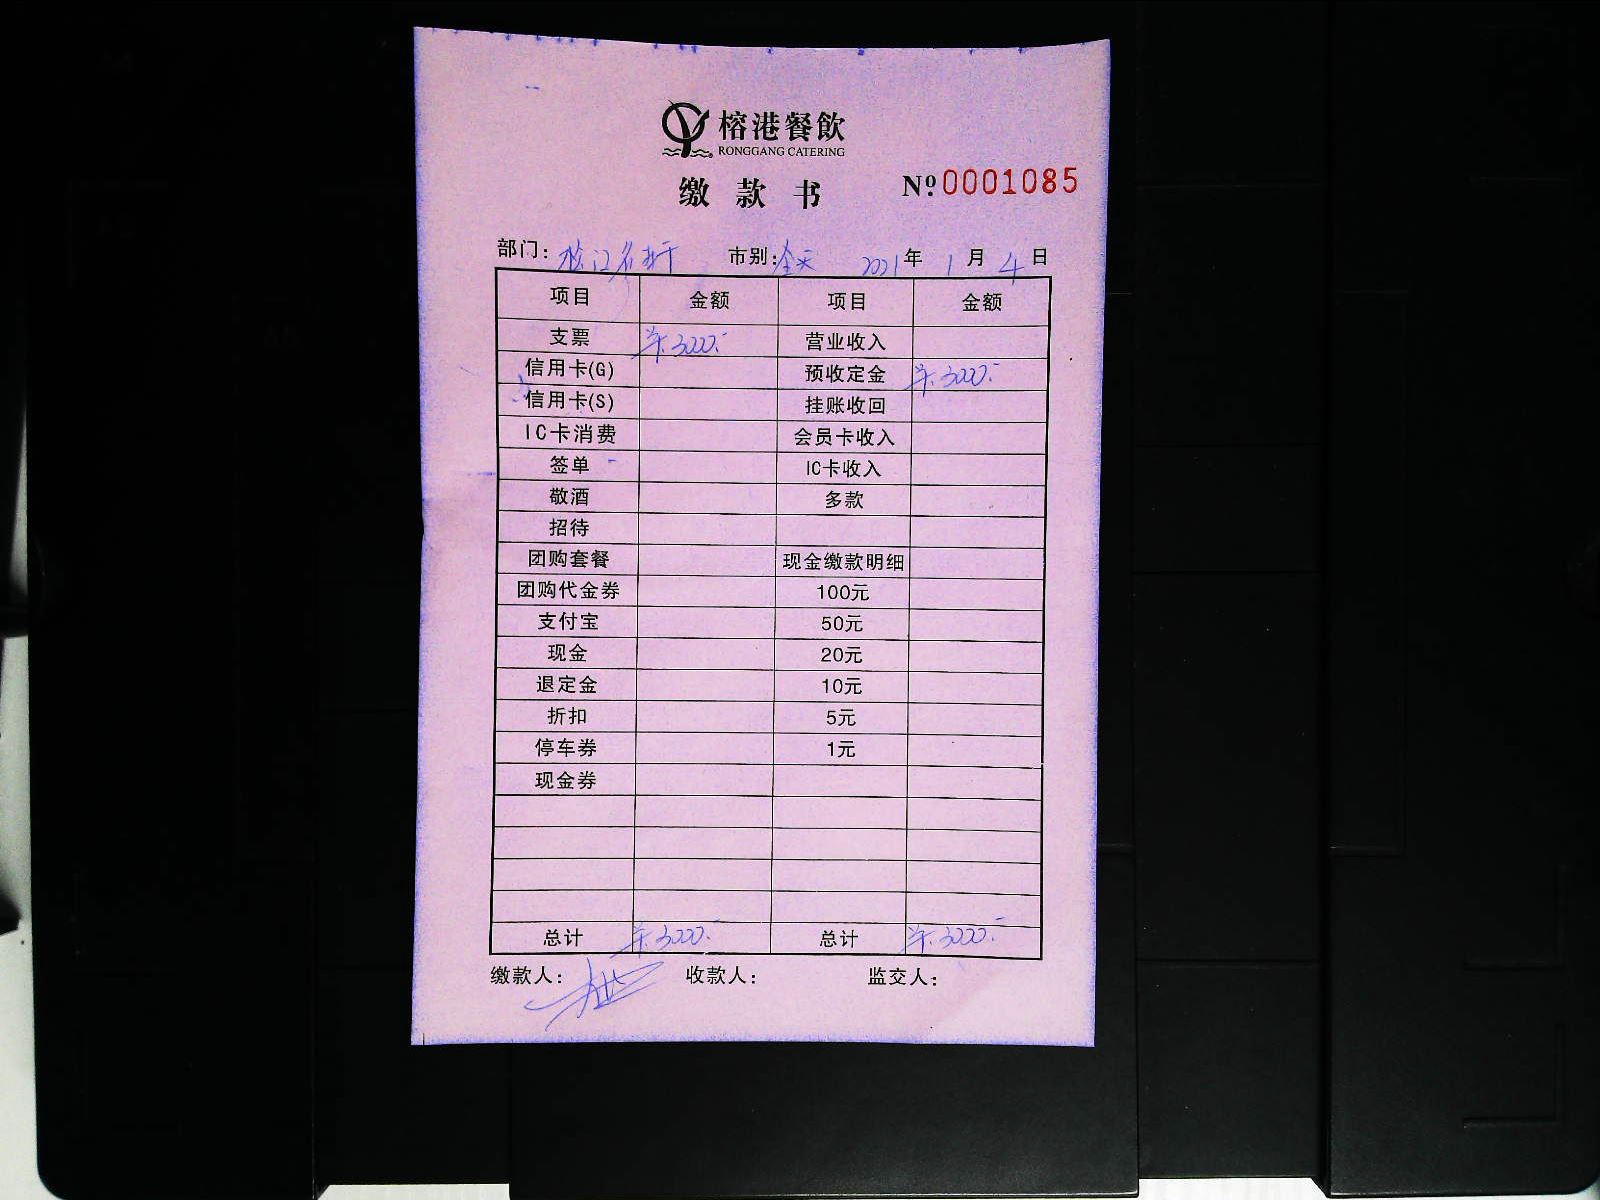 榕港餐飲
RONGGANG CATERING
缴款书
№0001085
部门: 市别:全天 2021年1月4日
项目 金额 项目 金额
支票 ¥3000.- 营业收入
信用卡(G) 预收定金 ¥3000.-
信用卡(S) 挂账收回
IC卡消费 会员卡收入
签单 IC卡收入
敬酒 多款
招待
团购套餐 现金缴款明细
团购代金券 100元
支付宝 50元
现金 20元
退定金 10元
折扣 5元
停车券 1元
现金券
总计 ¥3000.- 总计 ¥3000.-
缴款人: 收款人: 监交人: